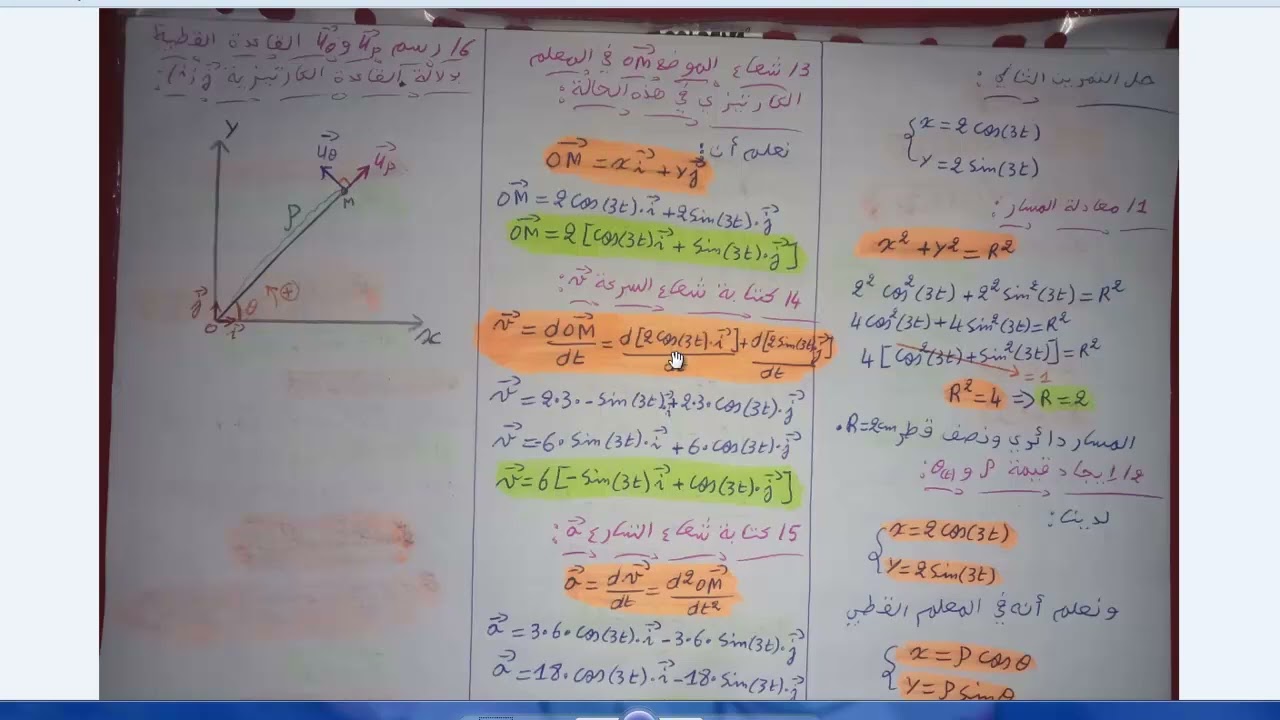 حل التمرين الثاني :
x = 2 cos(3t)
y = 2 sin(3t)
1/ معادلة المسار :
x² + y² = R²
2² cos²(3t) + 2² sin²(3t) = R²
4cos²(3t) + 4 sin²(3t) = R²
4 [cos²(3t) + sin²(3t)] = R²
= 1
R² = 4 => R = 2
المسار دائري ونصف قطر R = 2cm.
2/ إيجاد قيمة ρ و θ(t) :
لدينا :
x = 2 cos(3t)
y = 2 sin(3t)
ونعلم أنه في المعلم القطبي
x = ρ cosθ
y = ρ sinθ
3/ شعاع الموضع OM⃗ في المعلم
الكارتيزي في هذه الحالة :
نعلم أن :
OM⃗ = x i⃗ + y j⃗
OM⃗ = 2cos(3t).i⃗ + 2sin(3t).j⃗
OM⃗ = 2 [cos(3t) i⃗ + sin(3t).j⃗]
4/ كتابة شعاع السرعة v⃗ :
v⃗ = dOM⃗/dt = d[2cos(3t).i⃗]/ + d[2sin(3t) j⃗]/dt
v⃗ = 2.3.-sin(3t) i⃗ + 2.3.cos(3t).j⃗
v⃗ = 6.sin(3t).i⃗ + 6.cos(3t).j⃗
v⃗ = 6 [-sin(3t) i⃗ + cos(3t).j⃗]
5/ كتابة شعاع التسارع a⃗ :
a⃗ = dv⃗/dt = d²OM⃗/dt²
a⃗ = 3.6.cos(3t).i⃗ - 3.6.sin(3t).j⃗
a⃗ = 18.cos(3t).i⃗ - 18.sin(3t).j⃗
6/ رسم u⃗ρ و u⃗θ القاعدة القطبية
بدلالة القاعدة الكارتيزية (i⃗, j⃗) :
y
u⃗θ
u⃗ρ
M
ρ
j⃗
θ
+
O
i⃗
x